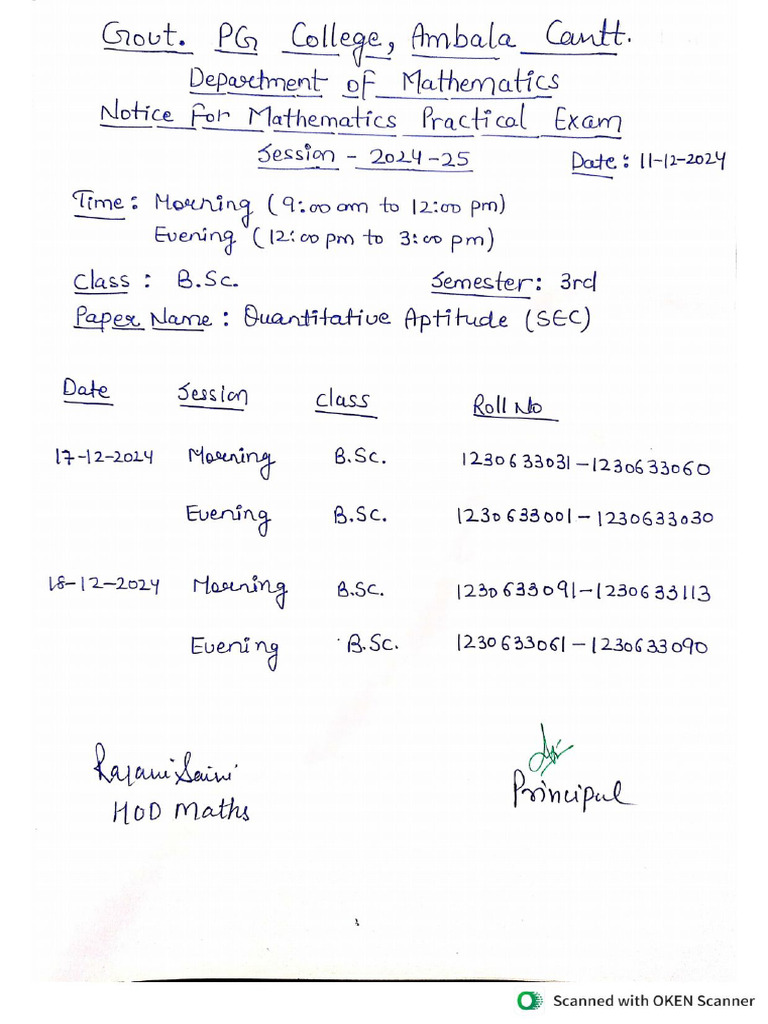 Govt. PG College, Ambala Cantt.
Department of Mathematics
Notice for Mathematics Practical Exam
Session - 2024-25 Date: 11-12-2024
Time: Morning (9:00 am to 12:00 pm)
Evening (12:00 pm to 3:00 pm)
Class: B.Sc. Semester: 3rd
Paper Name: Quantitative Aptitude (SEC)
Date Session Class Roll No
17-12-2024 Morning B.Sc. 1230633031-1230633060
Evening B.Sc. 1230633001-1230633030
18-12-2024 Morning B.Sc. 1230633091-1230633113
Evening B.Sc. 1230633061-1230633090
Rajani Saini
HOD Maths Principal
Scanned with OKEN Scanner